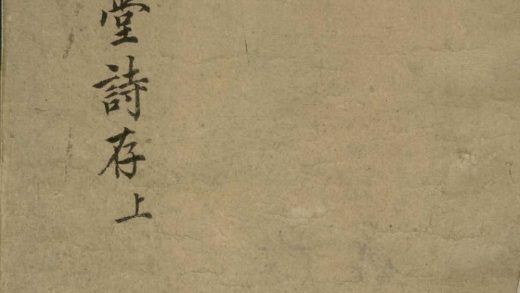 堂詩存上